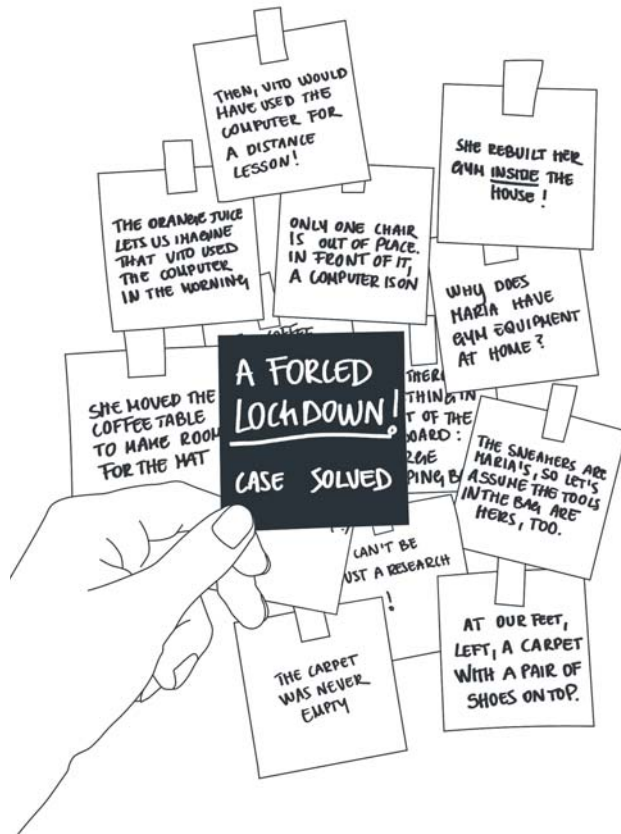 THEN, VITO WOULD
HAVE USED THE
COMPUTER FOR
A DISTANCE
LESSON!
SHE REBUILT HER
GYM INSIDE THE
HOUSE!
THE ORANGE JUICE
LETS US IMAGINE
THAT VITO USED
THE COMPUTER
IN THE MORNING
ONLY ONE CHAIR
IS OUT OF PLACE.
IN FRONT OF IT,
A COMPUTER IS ON
WHY DOES
MARIA HAVE
GYM EQUIPMENT
AT HOME?
SHE MOVED THE
COFFEE TABLE
TO MAKE ROOM
FOR THE MAT
A FORCED
LOCKDOWN!
CASE SOLVED
THING IN
OF THE
THE SNEAKERS ARE
MARIA'S, SO LET'S
ASSUME THE TOOLS
IN THE BAG ARE
HERS, TOO.
CAN'T BE
A RESEARCH
!
THE CARPET
WAS NEVER
EMPTY
AT OUR FEET,
LEFT, A CARPET
WITH A PAIR OF
SHOES ON TOP.